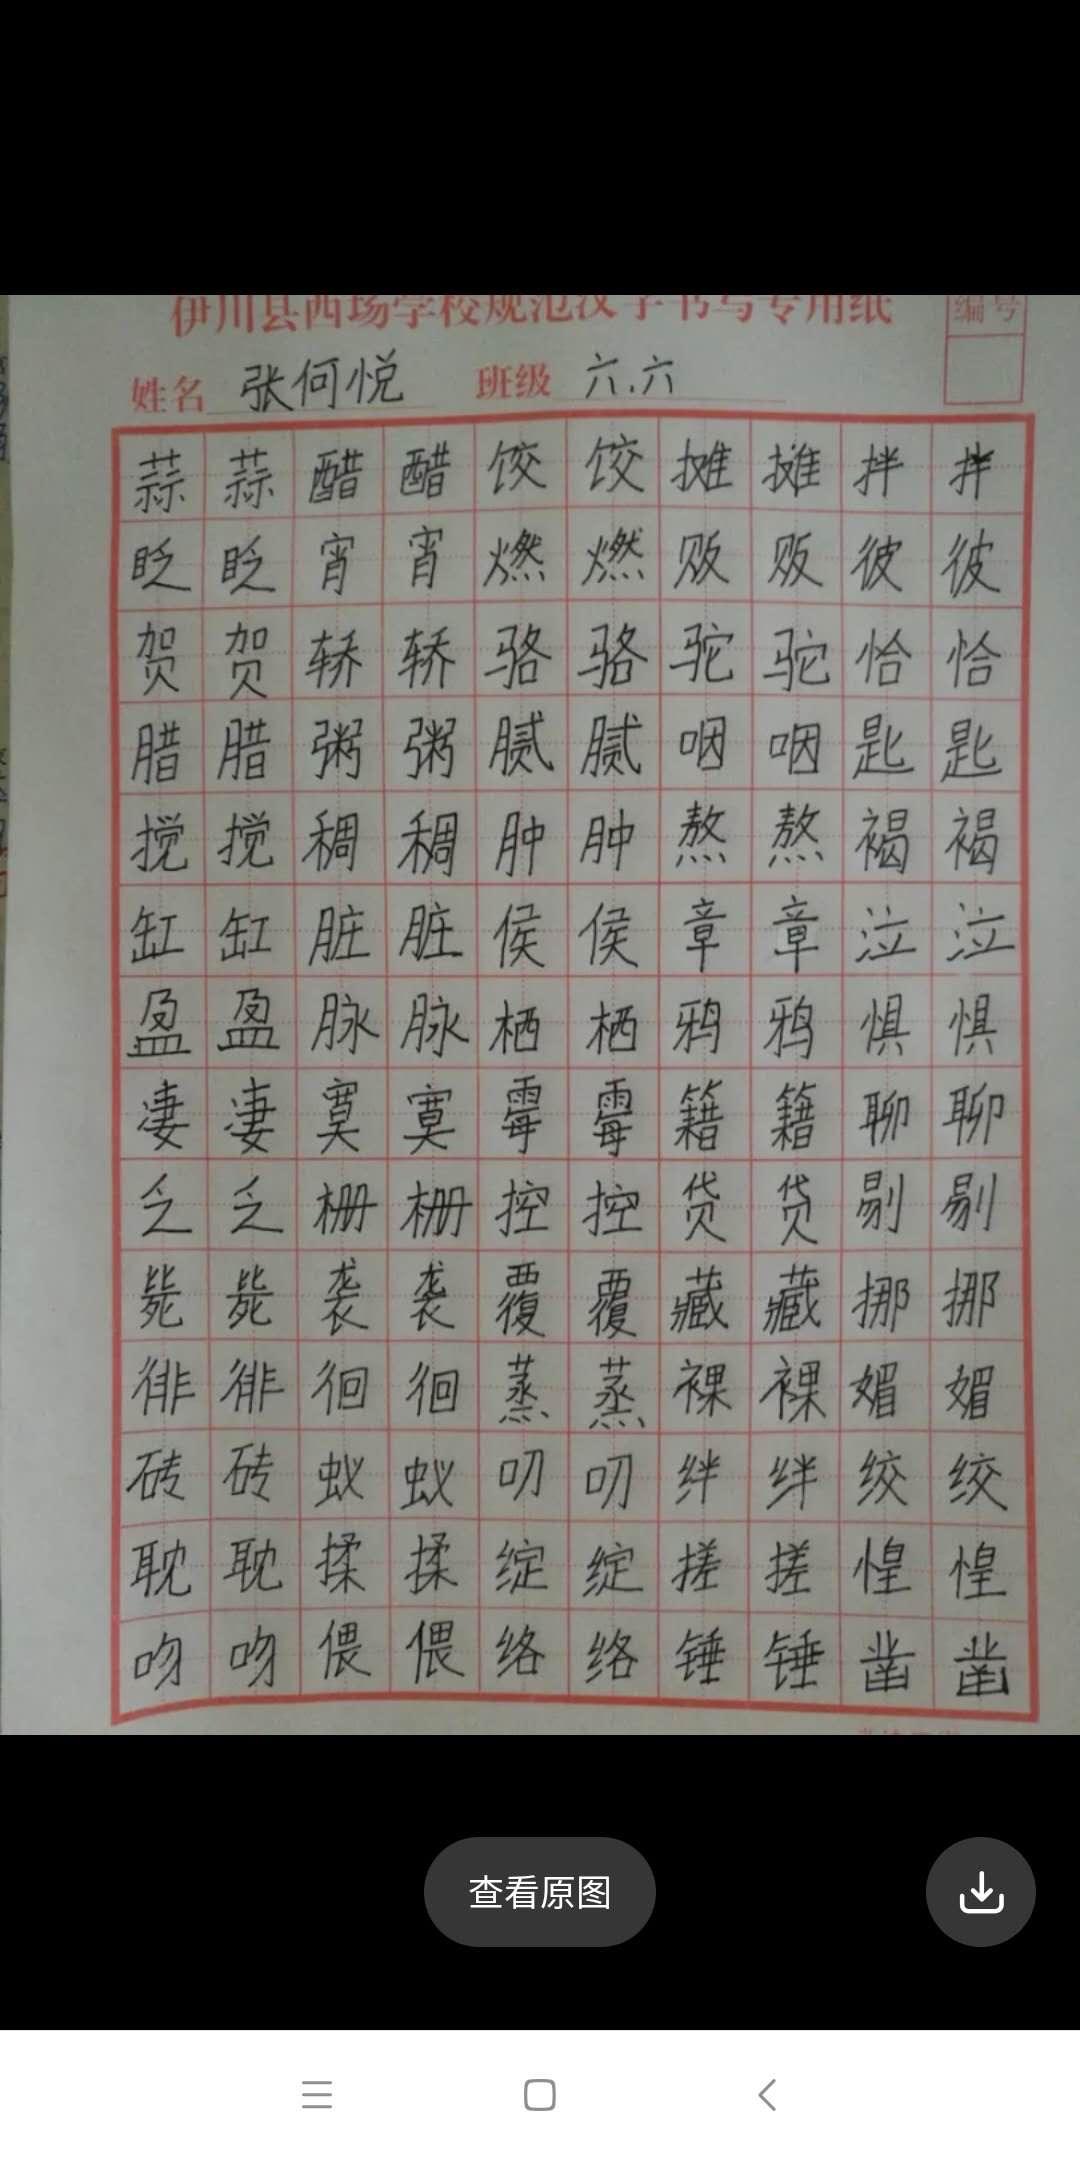 伊川县西场学校规范汉字书写专用纸
编号
姓名 张何悦 班级 六.六
蒜蒜醋醋饺饺摊摊拌拌
眨眨宵宵燃燃贩贩彼彼
贺贺轿轿骆骆驼驼恰恰
腊腊粥粥腻腻咽咽匙匙
搅搅稠稠肿肿熬熬褐褐
缸缸脏脏侯侯章章泣泣
盈盈脉脉栖栖鸦鸦惧惧
凄凄寞寞霉霉籍籍聊聊
乏乏栅栅控控贷贷剔剔
毙毙袭袭覆覆藏藏挪挪
徘徘徊徊蒸蒸裸裸媚媚
砖砖蚁蚁叨叨绊绊绞绞
耽耽揉揉绽绽搓搓惶惶
吻吻偎偎络络锤锤凿凿
查看原图